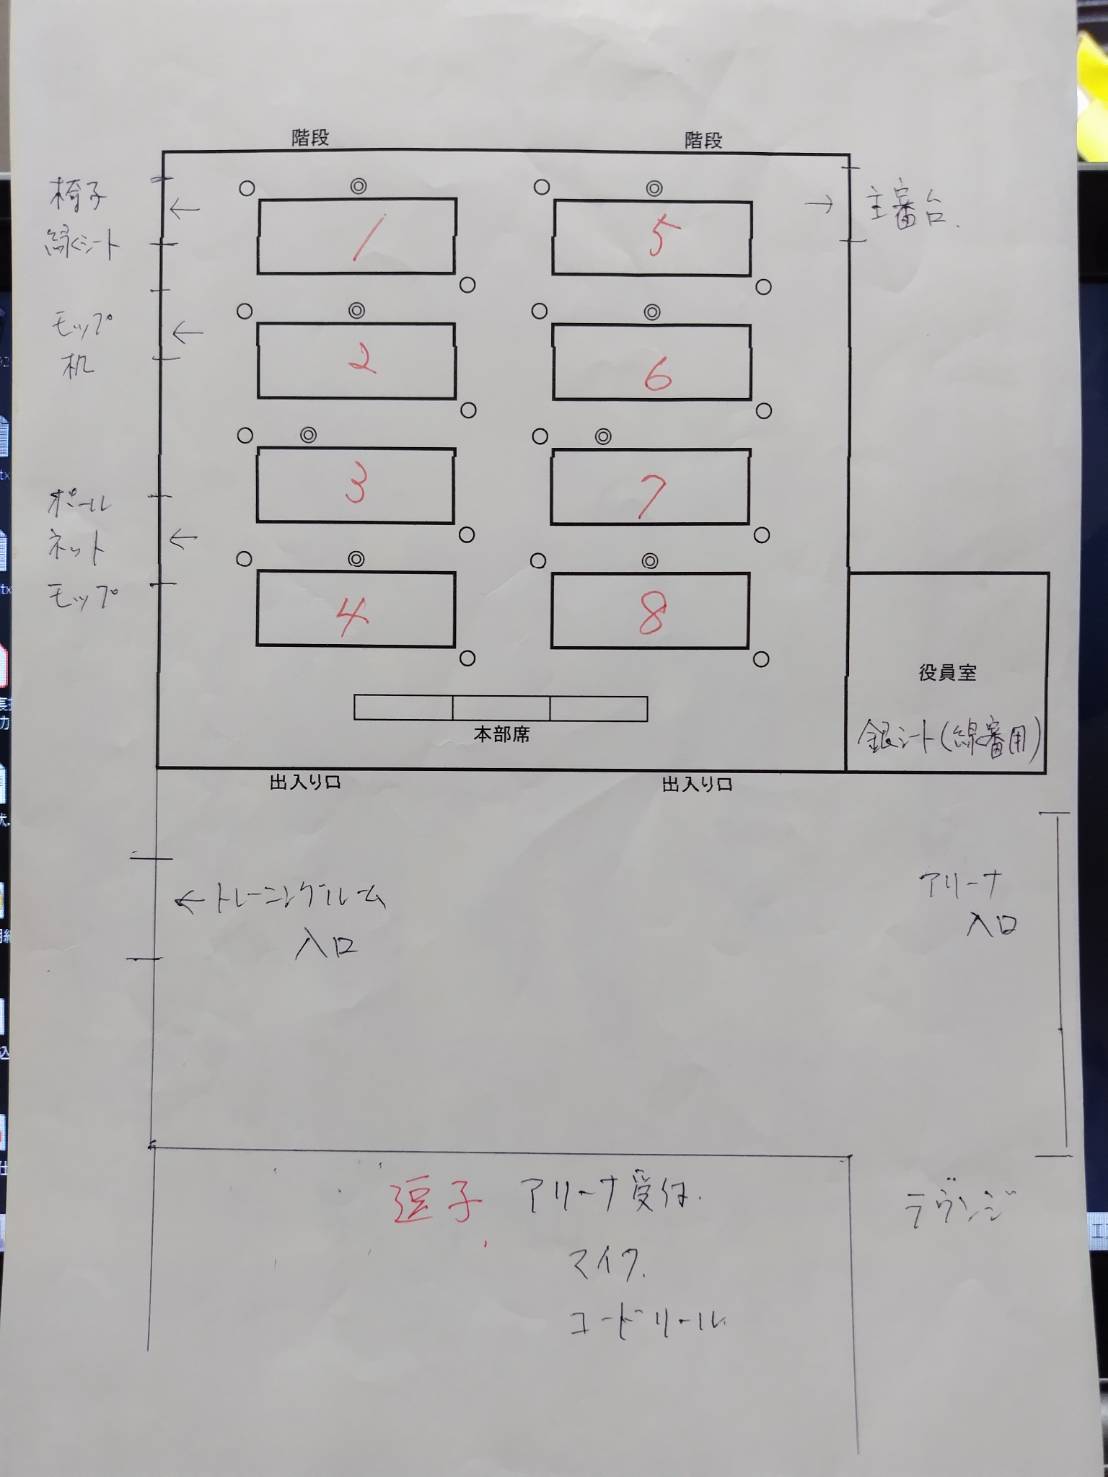 階段
階段
椅子
緑シート
主審台.
モップ
机
ポール
ネット
モップ
1
5
2
6
3
7
4
8
役員室
銀シート(線審用)
本部席
出入り口
出入り口
←トレーニングルーム
入口
アリーナ
入口
逗子 アリーナ受付.
マイク.
コードリール
ラウンジ